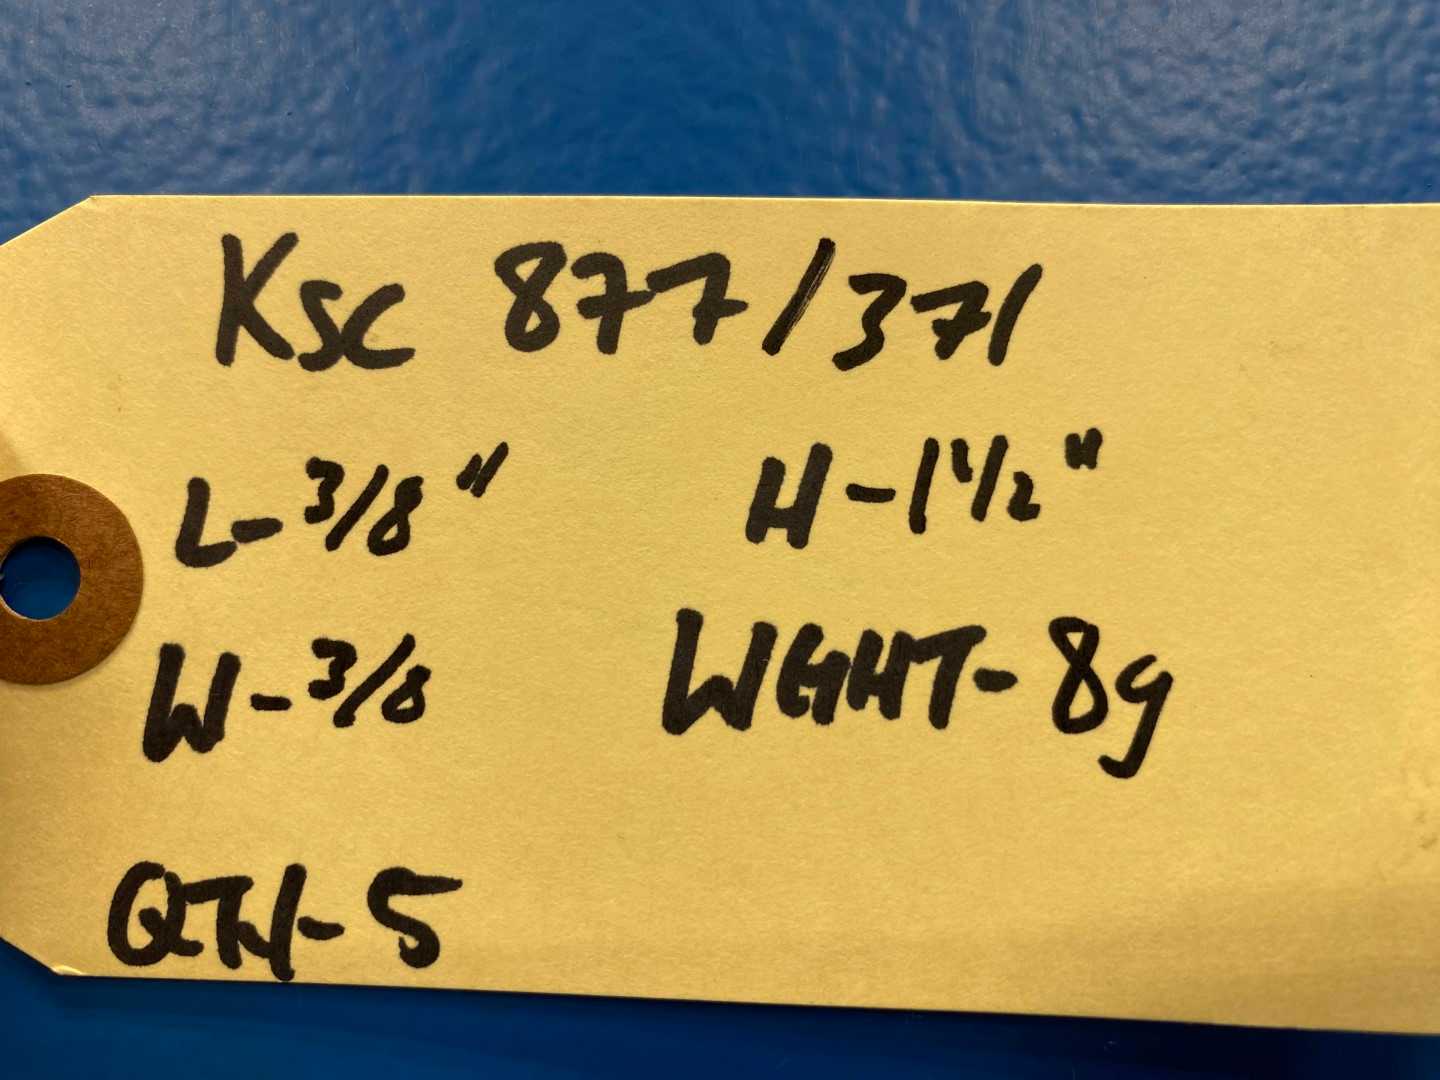 Ksc 877/371
L-3/8" H-1 1/2"
W-3/8 WGHT-8g
QTY-5